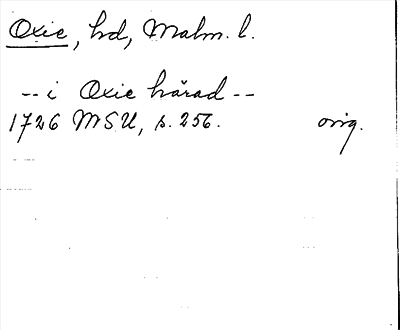 Oxie, hd, Malm. l.
-- i Oxie härad --
1726 MSU, s. 256. orig.